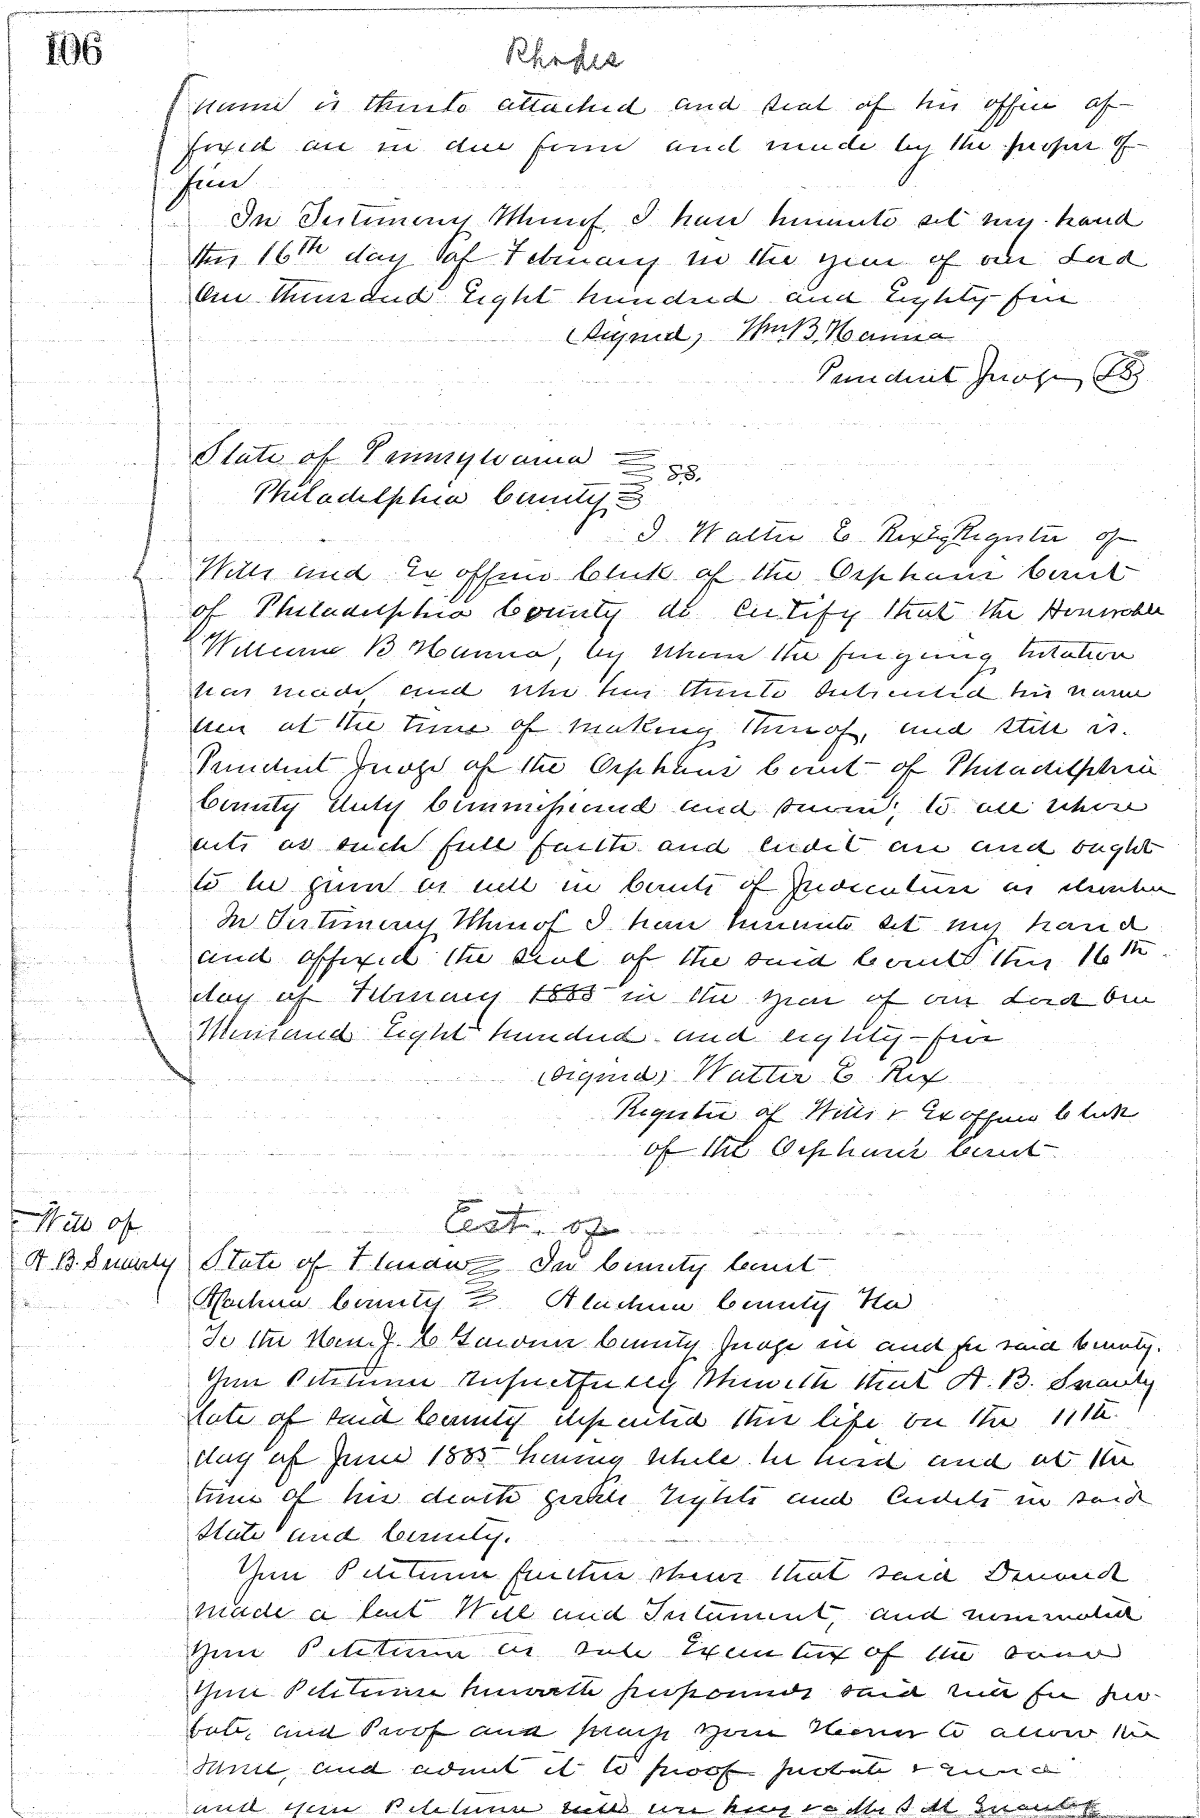 106
Rhodes
name is thereto attached and seal of his office af-
fixed are in due form and made by the proper of-
ficer
In Testimony Whereof I have hereunto set my hand
this 16th day of February in the year of our Lord
One thousand Eight hundred and Eighty five
(Signed) Wm. B. Hanna
President Judge
State of Pennsylvania
ss.
Philadelphia County
I Walter E Rex Register of
Wills and Ex officio Clerk of the Orphans Court
of Philadelphia County do Certify that the Honorable
William B Hanna, by whom the foregoing
was made and who has thereto subscribed his name
was at the time of making thereof, and still is.
President Judge of the Orphans Court of Philadelphia
County duly Commissioned and sworn; to all whose
acts as such full faith and credit are and ought
to be given as well in Courts of Judicature as elsewhere
In Testimony Whereof I have hereunto set my hand
and affixed the seal of the said Court this 16th
day of February 1885 in the year of our Lord One
Thousand Eight hundred and eighty-five
(Signed) Walter E. Rex
Register of Wills & Ex officio Clerk
of the Orphans Court
Est. of
Will of
A. B.
State of Florida In County Court
Alachua County Alachua County Fla
To the Hon. J. C. County Judge in and for said County.
Your Petitioner respectfully Sheweth that A. B.
late of said County departed this life on the 11th
day of June 1885 having while he lived and at the
time of his death goods rights and Credits in said
State and County.
Your Petitioner further shows that said Deceased
made a last Will and Testament, and nominated
your Petitioner as sole Executrix of the same
Your Petitioner herewith propounds said will for pro-
bate, and Proof and prays your Honor to allow the
same, and admit it to proof probate &
and your Petitioner will ever pray